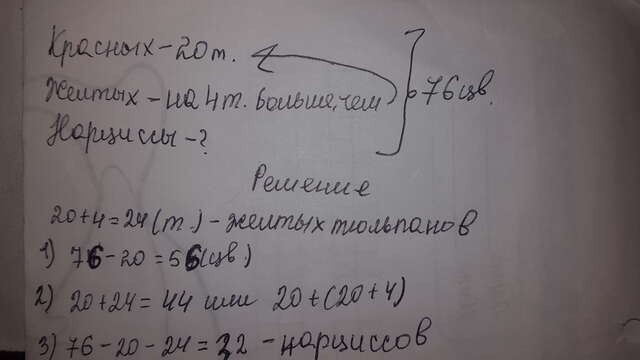 Красных - 20 т.
Желтых - на 4 т. больше, чем
76 цв.
Нарциссы - ?
Решение
20 + 4 = 24 (т.) - желтых тюльпанов
1) 76 - 20 = 56 (цв.)
2) 20 + 24 = 44 или 20 + (20 + 4)
3) 76 - 20 - 24 = 32 - нарциссов